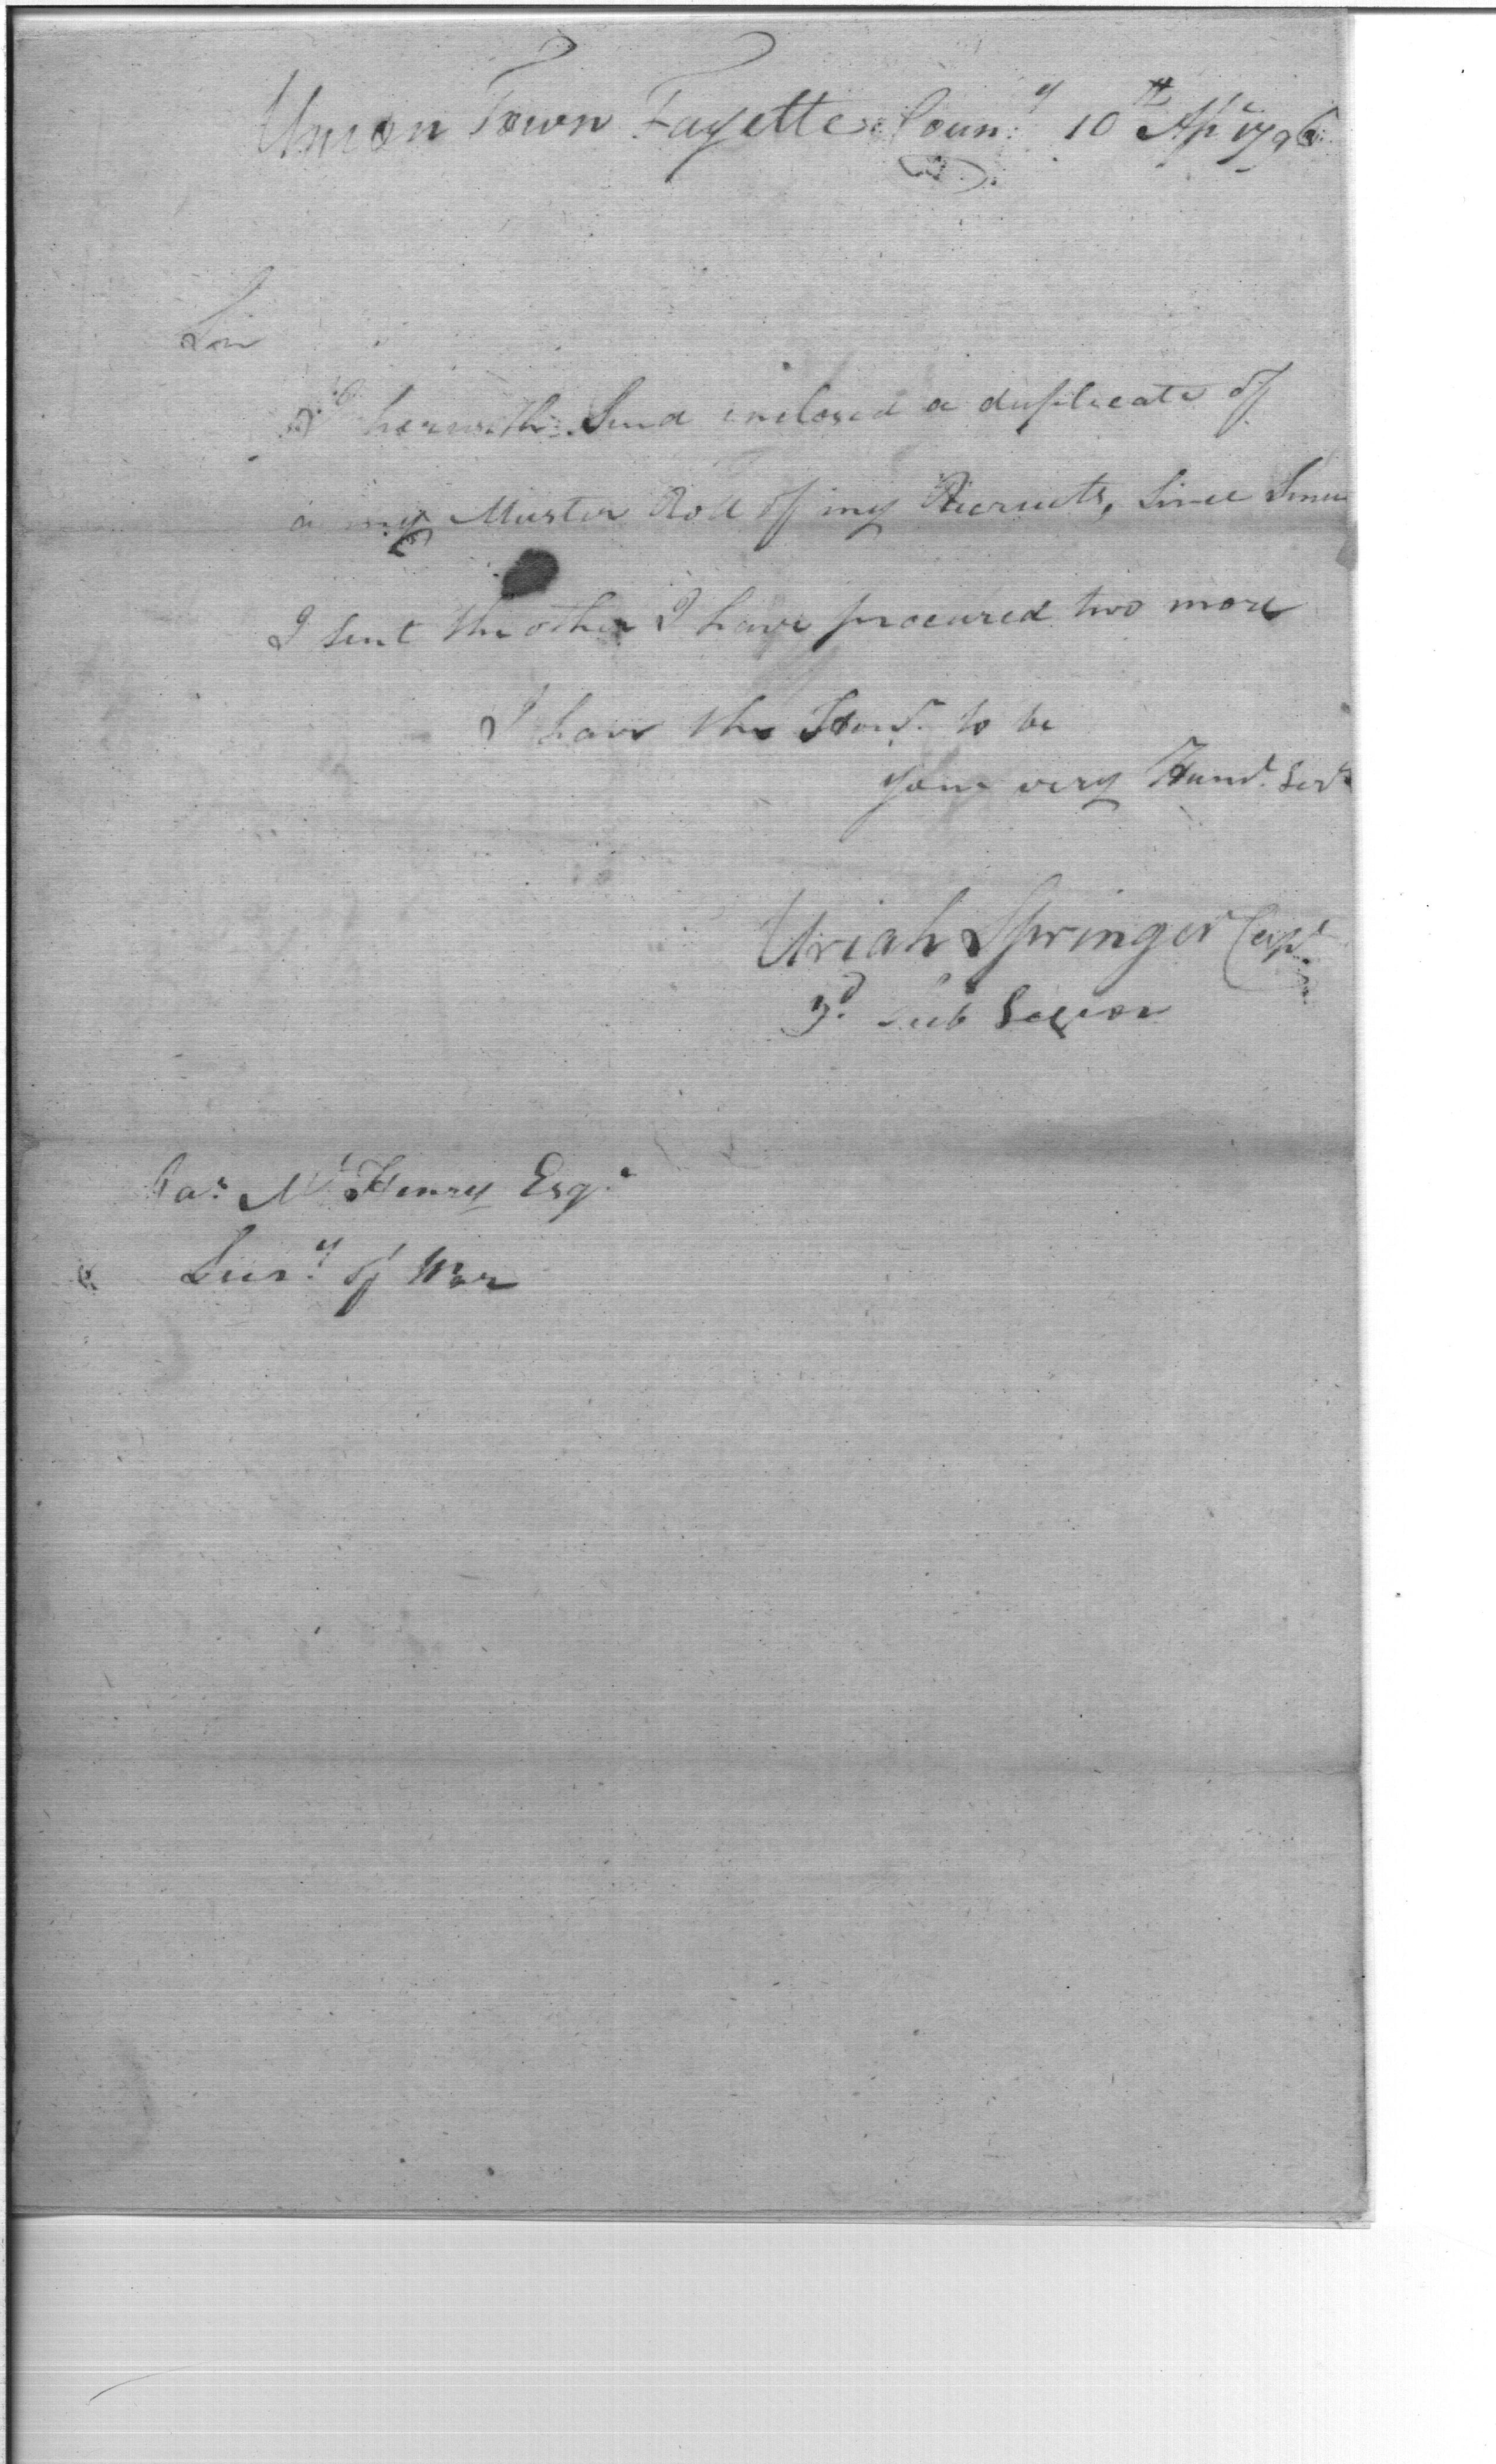 Union Town Fayette Coun:y 10th Apr 1796
Sir
I herewith Send inclosed a duplicate of
a my Muster Roll of my Recruits, Since Since
I sent the other I have procured two more
I have the Honr. to be
your very Hum. Servt
Uriah Springer Capt.
3d. Sub Legion
Jas. McHenry Esqr.
Secry. of War